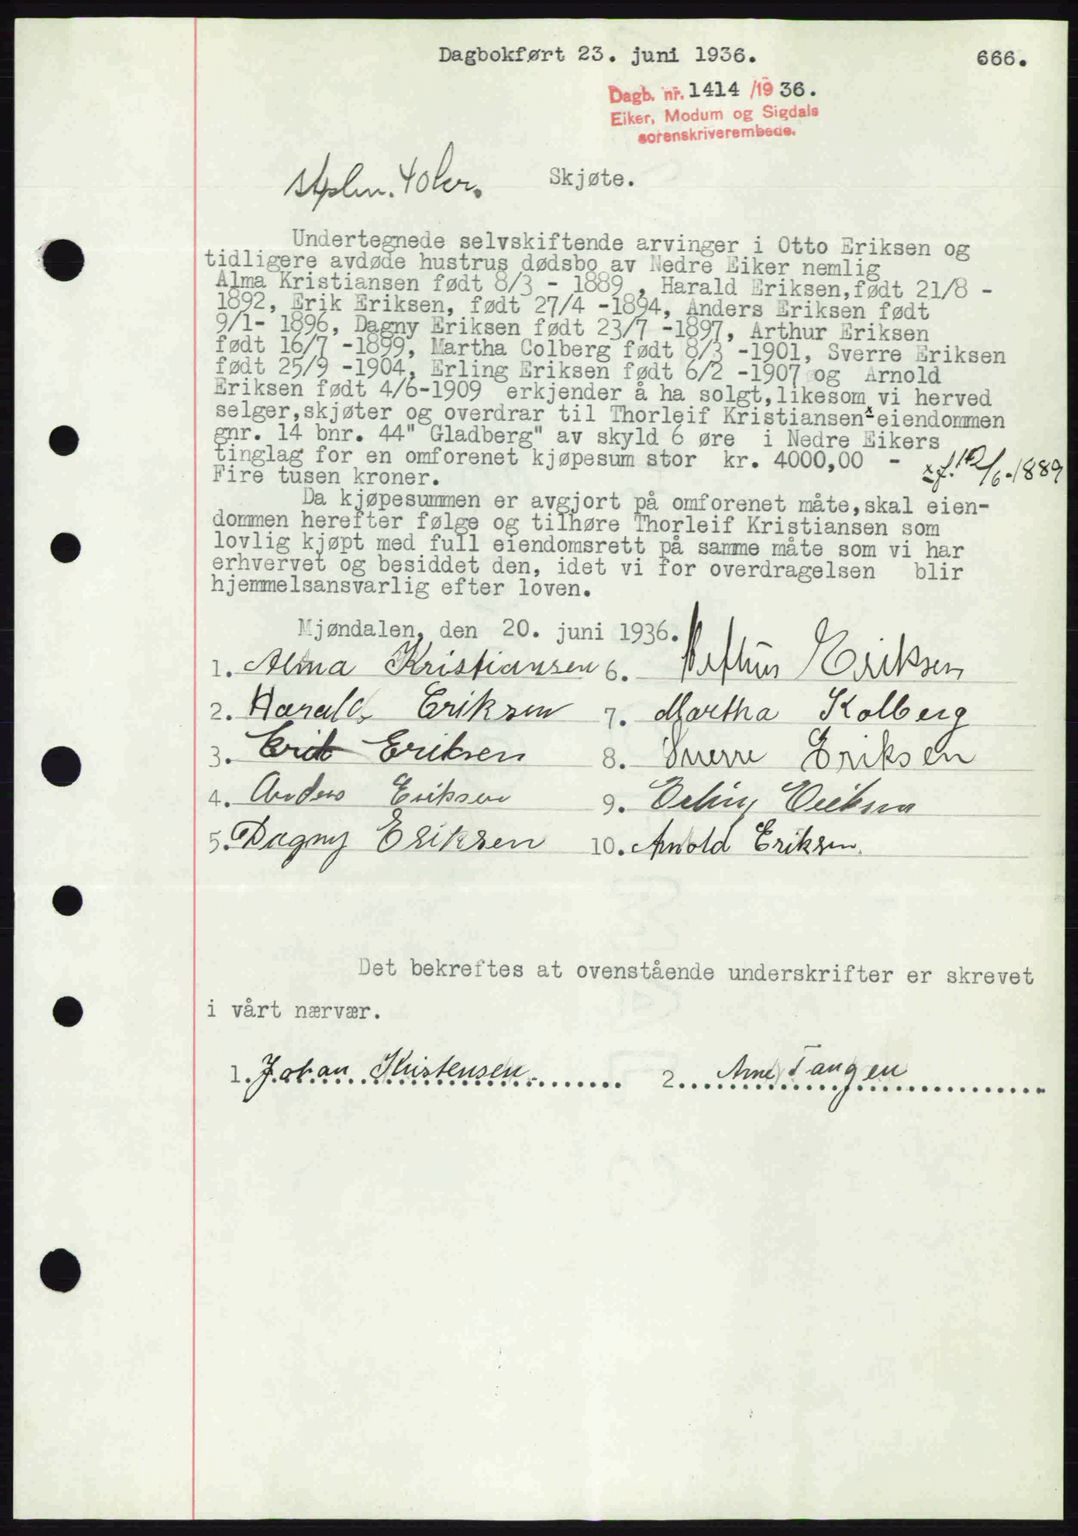 Dagbokført 23. juni 1936.
666.
Dagb. nr. 1414 /19 36.
Eiker, Modum og Sigdals
sorenskriverembede.
40 kr.
Skjøte.
Undertegnede selvskiftende arvinger i Otto Eriksen og
tidligere avdøde hustrus dødsbo av Nedre Eiker nemlig
Alma Kristiansen født 8/3 - 1889 , Harald Eriksen,født 21/8 -
1892, Erik Eriksen, født 27/4 -1894, Anders Eriksen født
9/1- 1896, Dagny Eriksen født 23/7 -1897, Arthur Eriksen
født 16/7 -1899, Martha Colberg født 8/3 -1901, Sverre Eriksen
født 25/9 -1904, Erling Eriksen født 6/2 -1907 og Arnold
Eriksen født 4/6-1909 erkjender å ha solgt,likesom vi herved
selger,skjøter og overdrar til Thorleif Kristiansen x eiendommen
gnr. 14 bnr. 44" Gladberg" av skyld 6 øre i Nedre Eikers
tinglag for en omforenet kjøpesum stor kr. 4000,00 -
x f. 12/6-1889
Fire tusen kroner.
Da kjøpesummen er avgjort på omforenet måte,skal eien-
dommen herefter følge og tilhøre Thorleif Kristiansen som
lovlig kjøpt med full eiendomsrett på samme måte som vi har
erhvervet og besiddet den, idet vi for overdragelsen blir
hjemmelsansvarlig efter loven.
Mjøndalen, den 20. juni 1936.
1. Alma Kristiansen 6. Arthur Eriksen
2. Harald Eriksen 7. Martha Kolberg
3. Erik Eriksen 8. Sverre Eriksen
4. Anders Eriksen 9. Erling Eriksen
5. Dagny Eriksen 10. Arnold Eriksen.
Det bekreftes at ovenstående underskrifter er skrevet
i vårt nærvær.
1. Johan Kristensen 2. Arne Tangen